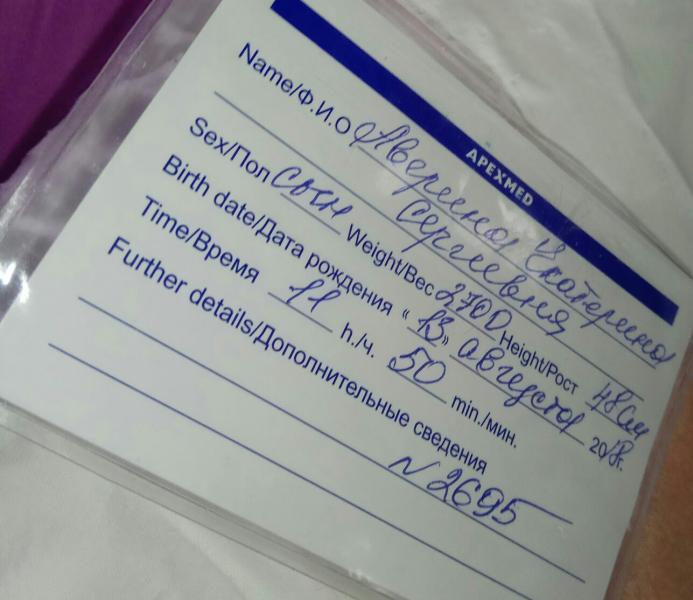 APEXMED
Name/Ф.И.О Аверина Екатерина
Сергеевна
Sex/Пол сын Weight/Вес 2700 Height/Рост 48см
Birth date/Дата рождения «13» августа 2018г.
Time/Время 11 h./ч. 50 min./мин.
Further details/Дополнительные сведения
N2695